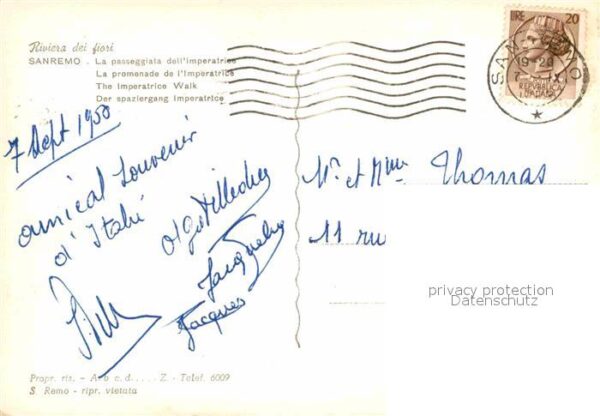 Riviera dei fiori
SANREMO . La passeggiata dell'imperatrice
La promenade de l'Imperatrice
The Imperatrice Walk
Der spaziergang Imperatrice
LIRE 20
SAN
19-20
7
IX
REPUBBLICA
ITALIANA
7 Sept 1950
amical souvenir
d'Italie
Jacqueline
Jacques
Mr et Mme Thomas
11 ru
privacy protection
Datenschutz
Propr. ris. - A. c.d. . . . . Z - Telef. 6009
S. Remo - ripr. vietata